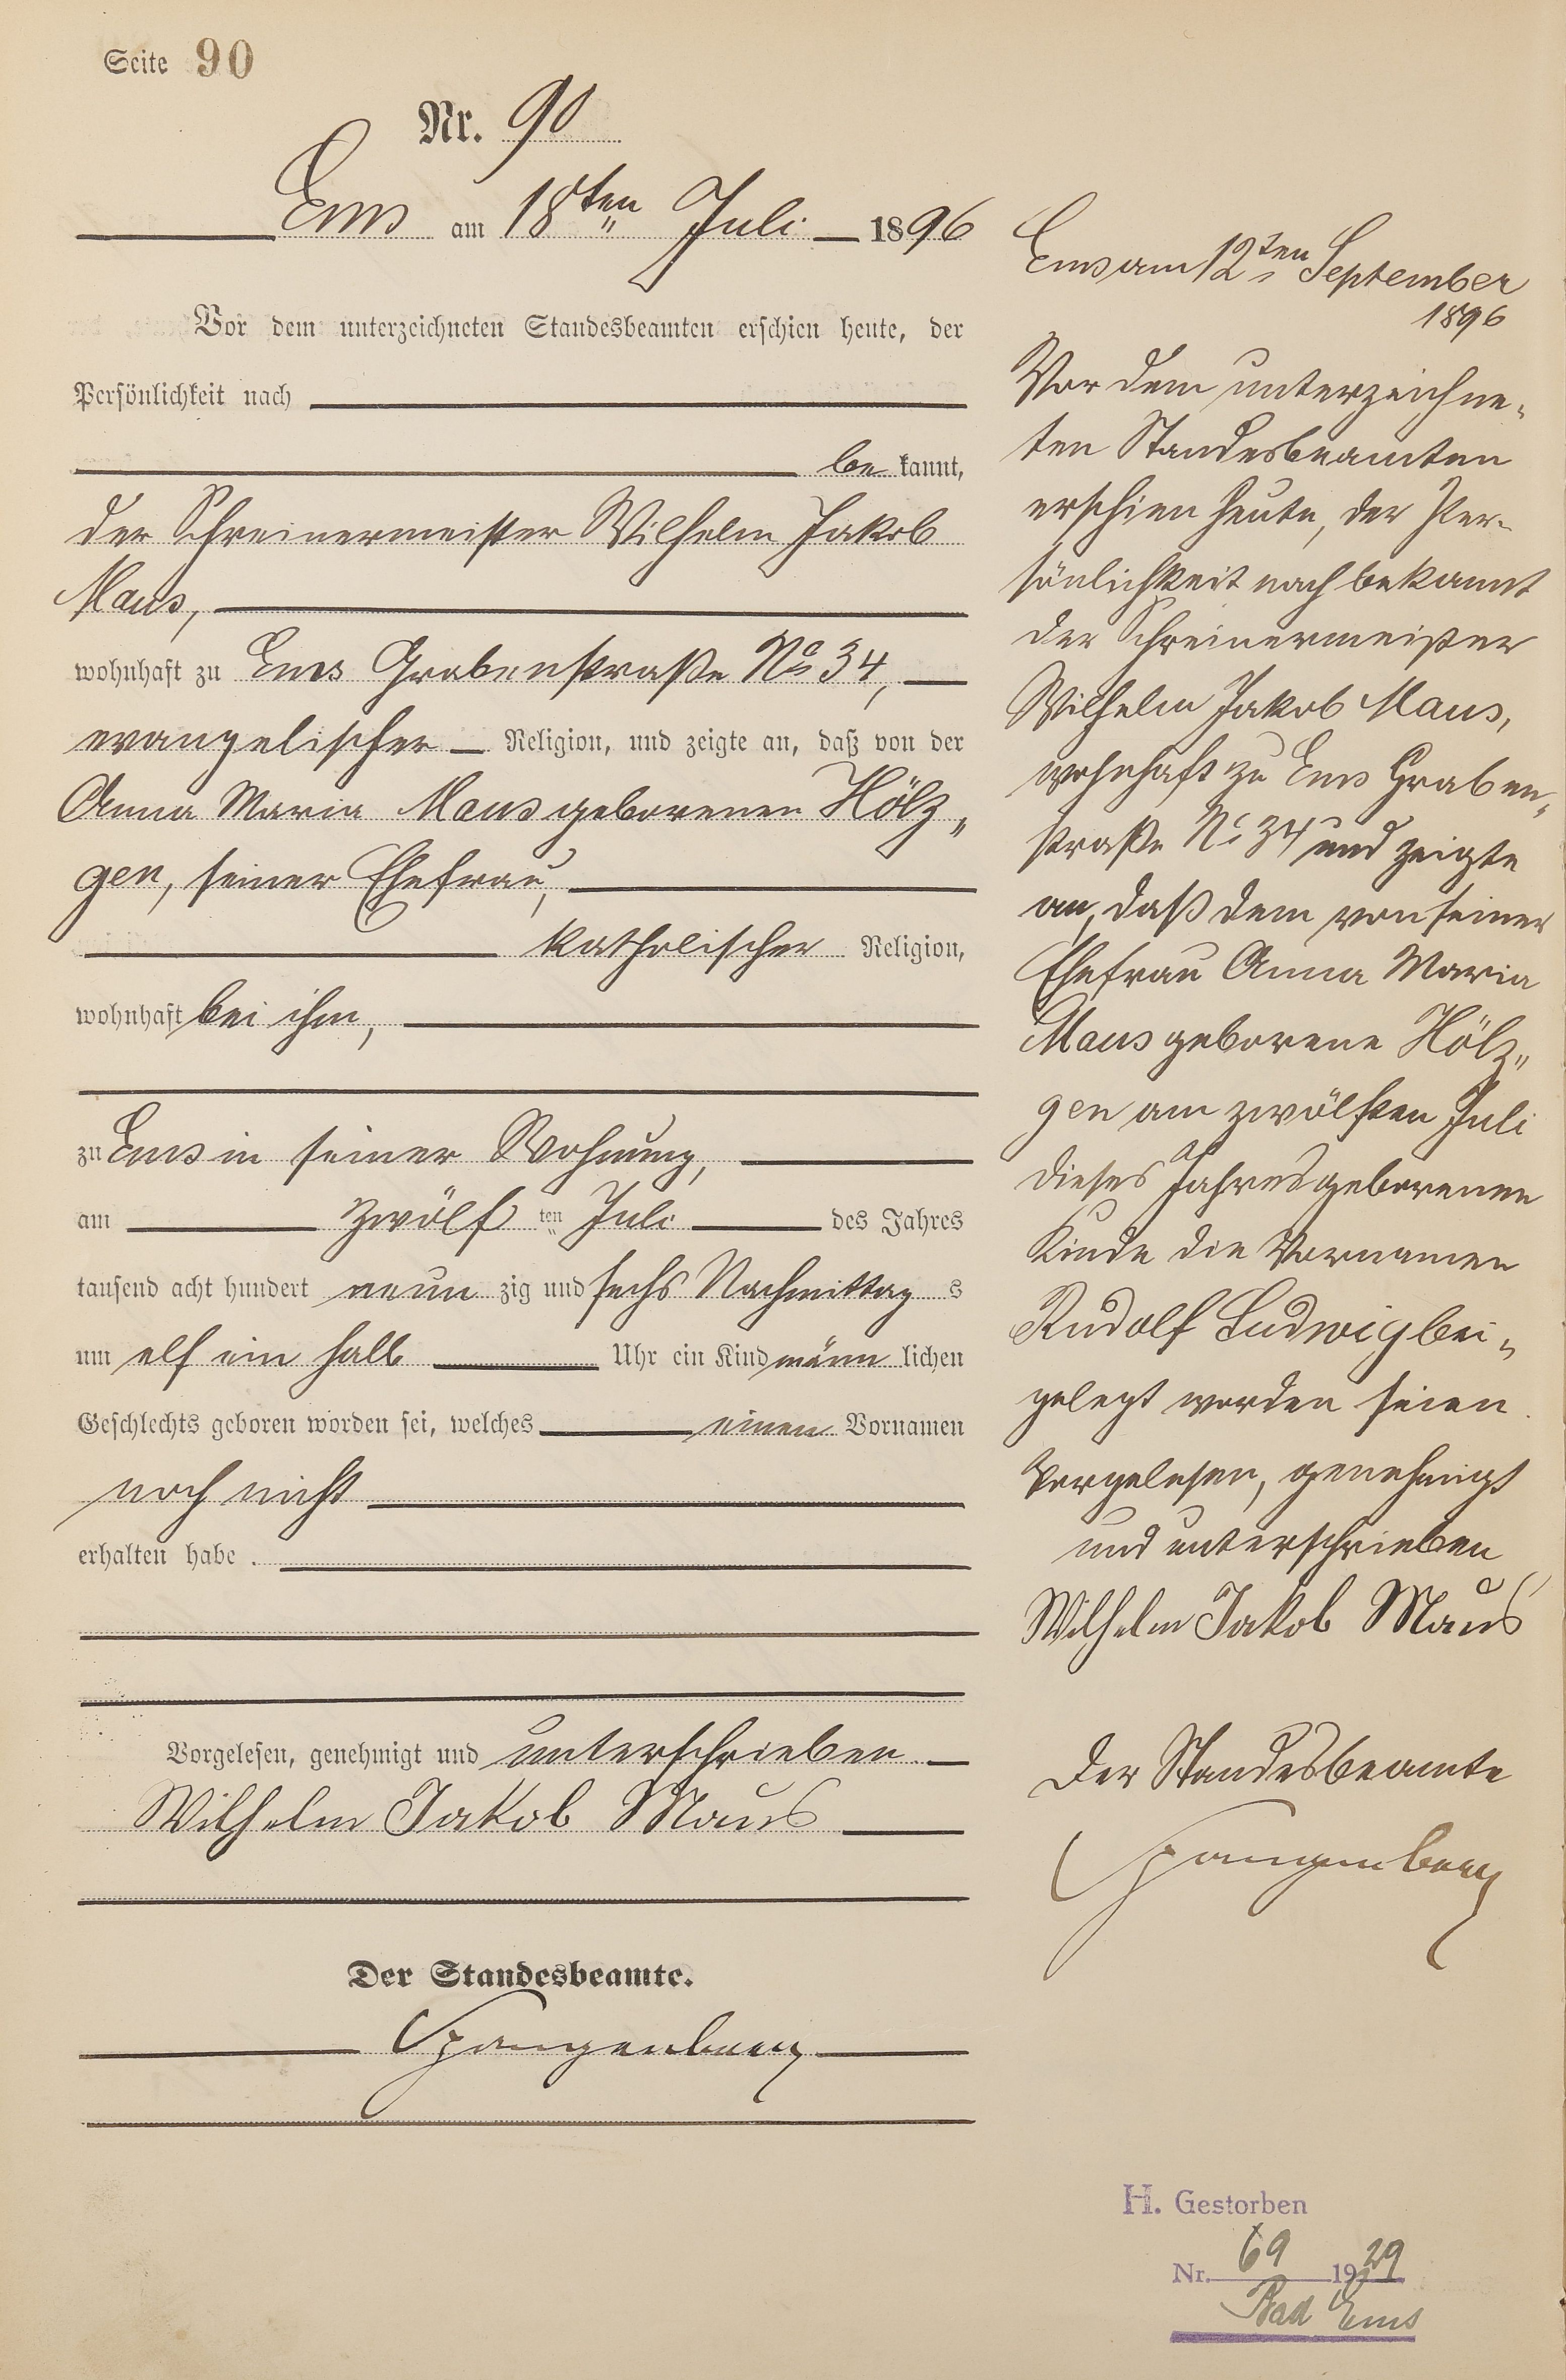 Seite 90
Nr. 90
Ems am 18ten Juli 1896
Vor dem unterzeichneten Standesbeamten erschien heute, der
Persönlichkeit nach
be kannt,
der Schreinermeister Wilhelm Jakob
Maus,
wohnhaft zu Ems Grabenstraße No 34,
evangelischer Religion, und zeigte an, daß von der
Anna Maria Maus geborenen Hölz„
gen, seiner Ehefrau,
katholischer Religion,
wohnhaft bei ihm,
zu Ems in seiner Wohnung,
am zwölf ten Juli des Jahres
tausend acht hundert neun zig und sechs Nachmittag s
um elf ein halb Uhr ein Kind männ lichen
Geschlechts geboren worden sei, welches einen Vornamen
noch nicht
erhalten habe.
Vorgelesen, genehmigt und unterschrieben
Wilhelm Jakob Maus
Der Standesbeamte.
Spangenberg
Ems am 12ten September
1896
Vor dem unterzeichne„
ten Standesbeamten
erschien heute, der Per-
sönlichkeit nach bekannt
der Schreinermeister
Wilhelm Jakob Maus,
wohnhaft zu Ems Graben„
straße No 34 und zeigte
an, daß dem von seiner
Ehefrau Anna Maria
Maus geborene Hölz„
gen am zwölften Juli
dieses Jahres geborenen
Kinde die Vornamen
Rudolf Ludwig bei„
gelegt worden seien.
Vorgelesen, genehmigt
und unterschrieben
Wilhelm Jakob Maus
Der Standesbeamte
Spangenberg
H. Gestorben
Nr. 69 1929
Bad Ems